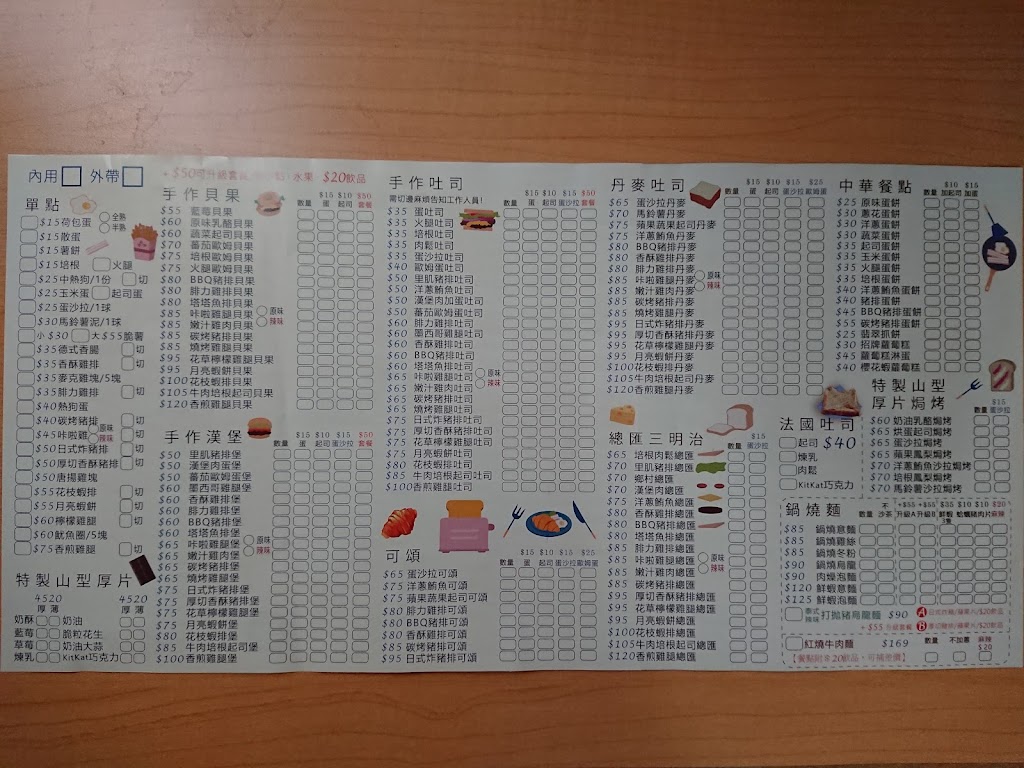 內用 外帶
+$50可升級套餐 水果 $20飲品
單點
$15荷包蛋 全熟 半熟
$15散蛋
$15薯餅
$15培根 火腿
$25中熱狗/1份 切
$25玉米蛋 起司蛋
$25蛋沙拉/1球
$30馬鈴薯泥/1球
小$30 大$55脆薯
$35德式香腸 切
$35香酥雞排 切
$35麥克雞塊/5塊
$35腓力雞排 切
$40熱狗蛋
$40碳烤豬排 切
$45咔啦雞 原味 辣味 切
$50日式炸豬排 切
$50厚切香酥豬排 切
$50唐揚雞塊
$55花枝蝦排 切
$55月亮蝦餅 切
$60檸檬雞腿 切
$60魷魚圈/5塊
$75香煎雞腿 切
特製山型厚片
4520 4520
厚 薄 厚 薄
奶酥 奶油
藍莓 脆粒花生
草莓 奶油大蒜
煉乳 KitKat巧克力
手作貝果
$15 $10 $50
數量 蛋 起司 套餐
$55 藍莓貝果
$60 原味乳酪貝果
$60 蔬菜起司貝果
$70 蕃茄歐姆貝果
$75 培根歐姆貝果
$75 火腿歐姆貝果
$80 BBQ豬排貝果
$80 腓力雞排貝果
$80 塔塔魚排貝果
$85 咔啦雞排貝果 原味 辣味
$85 嫩汁雞肉貝果
$85 碳烤豬排貝果
$85 燒烤雞腿貝果
$95 花草檸檬雞腿貝果
$95 月亮蝦餅貝果
$100花枝蝦排貝果
$105牛肉培根起司貝果
$120香煎雞腿貝果
手作漢堡
$15 $10 $15 $50
數量 蛋 起司 蛋沙拉 套餐
$50 里肌豬排堡
$50 漢堡肉蛋堡
$50 蕃茄歐姆蛋堡
$60 墨西哥雞堡
$60 香酥雞排堡
$60 腓力雞排堡
$60 BBQ豬排堡
$60 塔塔魚排堡
$65 咔啦雞腿堡 原味 辣味
$65 嫩汁雞肉堡
$65 碳烤豬排堡
$65 燒烤雞腿堡
$75 日式炸豬排堡
$75 厚切香酥豬排堡
$75 花草檸檬雞腿堡
$75 月亮蝦餅堡
$80 花枝蝦排堡
$85 牛肉培根起司堡
$100香煎雞腿堡
手作吐司
需切邊麻煩告知工作人員!
$15 $10 $15 $50
數量 蛋 起司 蛋沙拉 套餐
$35 蛋吐司
$35 火腿吐司
$35 培根吐司
$35 肉鬆吐司
$35 蛋沙拉吐司
$40 歐姆蛋吐司
$50 里肌豬排吐司
$50 洋蔥鮪魚吐司
$50 漢堡肉加蛋吐司
$50 蕃茄歐姆蛋吐司
$60 腓力雞排吐司
$60 墨西哥雞吐司
$60 香酥雞排吐司
$60 BBQ豬排吐司
$60 塔塔魚排吐司
$65 咔啦雞腿吐司 原味 辣味
$65 嫩汁雞肉吐司
$65 碳烤豬排吐司
$65 燒烤雞腿吐司
$75 日式炸豬排吐司
$75 厚切香酥豬排吐司
$75 花草檸檬雞腿吐司
$75 月亮蝦餅吐司
$80 花枝蝦排吐司
$85 牛肉培根起司吐司
$100香煎雞腿吐司
可頌
$15 $10 $15 $25
數量 蛋 起司 蛋沙拉 歐姆蛋
$65 蛋沙拉可頌
$75 洋蔥鮪魚可頌
$75 蘋果蔬果起司可頌
$80 腓力雞排可頌
$80 BBQ豬排可頌
$80 香酥雞排可頌
$85 碳烤豬排可頌
$95 日式炸豬排可頌
丹麥吐司
$15 $10 $15 $25
數量 蛋 起司 蛋沙拉 歐姆蛋
$65 蛋沙拉丹麥
$70 馬鈴薯丹麥
$75 蘋果蔬果起司丹麥
$75 洋蔥鮪魚丹麥
$80 BBQ豬排丹麥
$80 香酥雞排丹麥
$80 腓力雞排丹麥
$85 咔啦雞排丹麥 原味 辣味
$85 嫩汁雞肉丹麥
$85 碳烤豬排丹麥
$85 燒烤雞腿丹麥
$95 日式炸豬排丹麥
$95 厚切香酥豬排丹麥
$95 花草檸檬雞腿丹麥
$95 月亮蝦餅丹麥
$100花枝蝦排丹麥
$105牛肉培根起司丹麥
$120香煎雞腿丹麥
總匯三明治
$15
數量 蛋沙拉
$65 培根肉鬆總匯
$70 里肌豬排總匯
$70 鄉村總匯
$70 漢堡肉總匯
$75 洋蔥鮪魚總匯
$80 香酥雞排總匯
$80 BBQ豬排總匯
$80 塔塔魚排總匯
$85 腓力雞排總匯
$85 咔啦雞腿總匯 原味 辣味
$85 嫩汁雞肉總匯
$85 碳烤豬排總匯
$95 厚切香酥豬排總匯
$95 花草檸檬雞腿總匯
$95 月亮蝦餅總匯
$100花枝蝦排總匯
$105牛肉培根起司總匯
$120香煎雞腿總匯
中華餐點
$10 $15
數量 加起司 加蛋
$25 原味蛋餅
$30 蔥花蛋餅
$30 洋蔥蛋餅
$30 蔬菜蛋餅
$35 起司蛋餅
$35 玉米蛋餅
$35 火腿蛋餅
$35 培根蛋餅
$40 洋蔥鮪魚蛋餅
$40 豬排蛋餅
$45 BBQ豬排蛋餅
$55 碳烤豬排蛋餅
$25 蔥抓餅
$30 招牌蘿蔔糕
$45 蘿蔔糕淋蛋
$40 櫻花蝦蘿蔔糕
法國吐司
$40
起司
煉乳
肉鬆
KitKat巧克力
特製山型
厚片焗烤
$15
數量 蛋沙拉
$60 奶油乳酪焗烤
$65 烘蛋起司焗烤
$65 蛋沙拉焗烤
$65 蘋果鳳梨焗烤
$70 洋蔥鮪魚沙拉焗烤
$70 培根鳳梨焗烤
$70 馬鈴薯沙拉焗烤
鍋燒麵
不 +$55 +$55 $35 $10 $10 $20
數量 沙茶 升級A 升級B 鮮蝦3隻 蛤蠣 豬肉片 麻辣
$85 鍋燒意麵
$85 鍋燒雞絲
$85 鍋燒冬粉
$90 鍋燒烏龍
$90 肉燥泡麵
$120 鮮蝦意麵
$125 鮮蝦泡麵
泰式辣味 打拋豬烏龍麵 $90
A 日式炸物/蘋果片/$20飲品
+$55升級套餐 B 厚切豬排/蘋果片/$20飲品
紅燒牛肉麵 $169
數量 不加蔥 麻辣$20
【餐點附贈20飲品、可補差價】